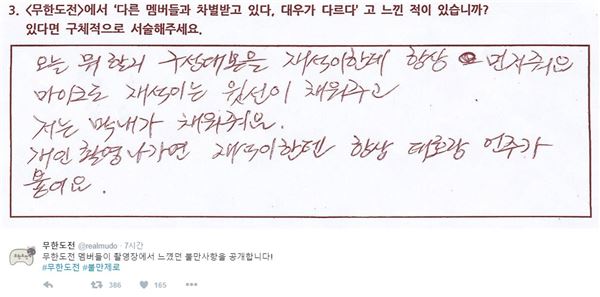 3. <무한도전>에서 '다른 멤버들과 차별받고 있다, 대우가 다르다' 고 느낀 적이 있습니까?
있다면 구체적으로 서술해주세요.
오늘 뭐 할지 구성대본을 재석이한테 항상 먼저줘요
마이크로 재석이는 원선이 채워주고
저는 막내가 채워줘요.
개인촬영나가면 재석이한텐 항상 태호랑 언주가
붙어요.
무한도전 @realmudo · 7시간
무한도전 멤버들이 촬영장에서 느꼈던 불만사항을 공개합니다!
#무한도전 #불만제로
386 165